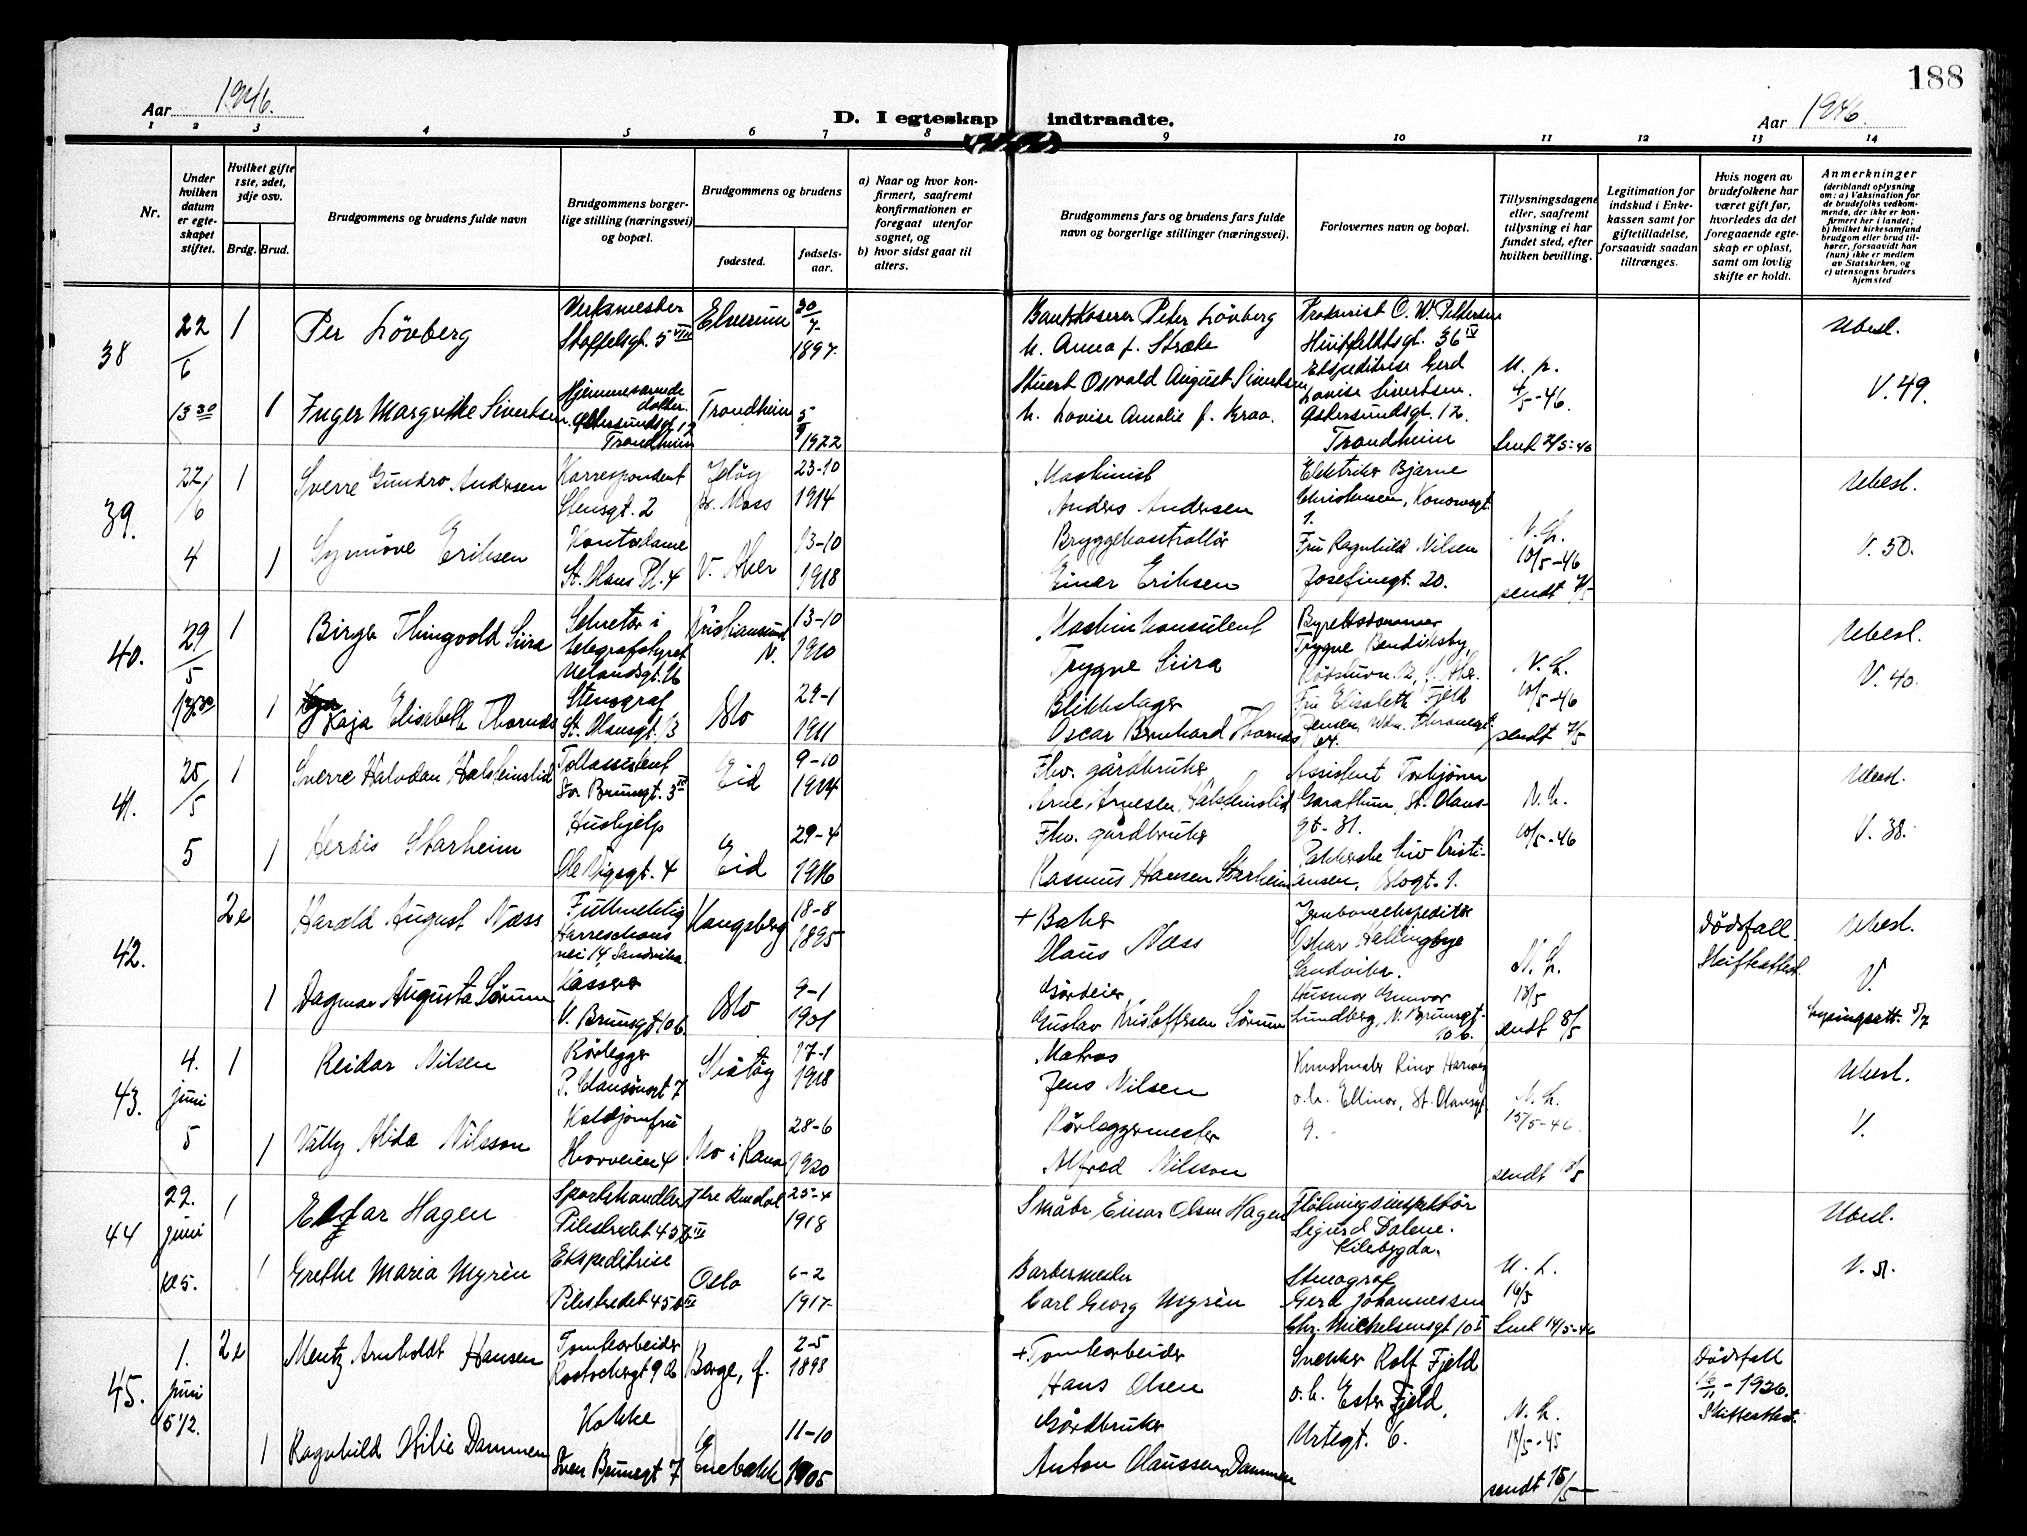 188
Aar 1946.
D. I egteskap indtraadte.
Aar 1946.
1 2 3 4 5 6 7 8 9 10 11 12 13 14
Nr.
Under hvilken datum er egteskapet stiftet.
Hvilket gifte 1ste, 2det, 3dje osv.
Brdg. Brud.
Brudgommens og brudens fulde navn
Brudgommens borgerlige stilling (næringsvei) og bopæl.
Brudgommens og brudens
fødested.
fødselsaar.
a) Naar og hvor konfirmert, saafremt konfirmationen er foregaat utenfor sognet, og
b) hvor sidst gaat til alters.
Brudgommens fars og brudens fars fulde navn og borgerlige stillinger (næringsvei).
Forlovernes navn og bopæl.
Tillysningsdagene eller, saafremt tillysning ei har fundet sted, efter hvilken bevilling.
Legitimation for indskud i Enkekassen samt for giftetilladelse, forsaavidt saadan tiltrænges.
Hvis nogen av brudefolkene har været gift før, hvorledes da det foregaaende egteskap er opløst, samt om lovlig skifte er holdt.
Anmerkninger
(deriblandt oplysning om: a) Vaksination for de brudefolks vedkommende, der ikke er konfirmert her i landet; b) hvilket kirkesamfund brudgom eller brud tilhører, forsaavidt han (hun) ikke er medlem av Statskirken, og c) utensogns bruders hjemsted
38 22/6 13 30
1 Per Lövberg
Verksmester
Stoffelsgt. 5 VIII
Elverum 30/7 1897
Bankkaserer Peter Lövberg
u. Anna f. Stræte
Prokurist C. W. Pettersen
Huitfeldtsgt. 36 IV
Ubesl.
1 Inger Margrethe Sivertsen
Hjemmeværende datter
Østersundsgt. 12
Trondheim
Trondheim 5/9 1922
Stuert Osvald August Sivertsen
u. Lovise Amalie f. Kraa.
Ekspeditrise Gerd
Lovise Sivertsen.
Østersundsgt. 12.
Trondheim
4/5-46.
V. 49.
39. 22/6 4
1 Sverre Gundro Andersen
Korrespondent
Stensgt. 2
Jeløy pr. Moss
23-10 1914
Maskinist
Anders Andersen
Elektriker Bjarne
Christensen, Konowsgt
1.
Ubesl.
1 Synnöve Eriksen
Kontordame
St. Olavs Pl. 4
V. Aker
13-10 1918
Bryggekontrollör
Einar Eriksen
Fru Ragnhild Nilsen
Josefinegt. 20.
N. L.
10/5-46
sendt 7/5
V. 50.
40. 29/5 13.30
1 Birger Thingvold Siira
Sekretær i
telegrafstyret
Uelandsgt.
Kristiansund N.
13-10 1910
Maskinkonsulent
Trygve Siira
Byrettsdommer
Trygve Bendiksby,
Ubesl.
1 Kaja Elisabeth Thornæs
Stenograf
St. Olavsgt. 13
Oslo
29-1 1911
Blikkslager
Oscar Bernhard Thornæs
Fru Elisabeth Fjeld
Jensen, Wdm. Thranesgt.
64.
N. L.
10/5-46
sendt 7/5
V. 40.
41. 25/5 5
1 Sverre Halvdan Halsteinslid
Tollassistent
Eid
9-10 1914
Fhv. gårdbruker
Arne Arnesen Halsteinslid
Assistent Torbjörn
Garathun, St. Olavs-
gt. 31.
Ubesl.
1 Herdis Starheim
Hushjelp
Ole Vigsgt. 4
Eid
29-4 1916
Fhv. gårdbruker
Rasmus Hansen Starheim
Pakkerske Liv Kristi-
ansen, Oslogt. 1.
N. L.
10/5-46
V. 38.
42.
2e Harald August Næss
Fullmektig
vei 14 Sandvika
Kongsberg
18-8 1895
+ Baker
Olaus Næss
Jernbaneekspeditör
Oskar Hallingbye
Sandvika.
Dødsfall.
Skifteattest.
Ubesl.
1 Dagmar Augusta Sörum
Kasserer
V. Brunsgt 10 b
Oslo
9-1 1901
Gårdeier
Gustav Kristoffersen Sörum
Husmor Gunvor
Lundberg, V. Brunsgt.
10 b.
N. L.
13/5
sendt 8/5
V.
Lysingsatt. 5/7
43. 4. juni 5
1 Reidar Nilsen
Rörlegger
17-1 1918
Matros
Jens Nilsen
Kunstmaler
o.h. Ellinor, St. Olavsgt.
9.
Ubesl.
1 Vally Alida Nilsson
Koldjomfru
Mo i Rana
28-6 1920
Rörleggermester
Alfred Nilsson
N. L.
15/5-46
V.
44 22. juni
1 Edgar Hagen
Sportshandler
Pilestredet 45 b III
25-4 1918
Småbr. Einar Olsen Hagen
Flötningsinspektör
Sigurd Dalene.
Kilebygda.
Ubesl.
1 Grethe Maria Myrèn
Ekspeditrise
Pilestredet 45 b III
Oslo
6-2 1917
Barbermester
Carl Georg Myrèn
Stenograf
Gerd Johannessen
Chr. Michelsensgt 10 I
16/5
Sendt 14/5-46
45. 1. juni 5 1/2.
2e Mentz Arnholdt Hansen
Tomtearbeider
Borge, f.
2-5 1898
+ Tomtearbeider
Hans Olsen
Snekker Rolf Fjeld
o.h. Ester Fjeld,
Urtegt. 6.
Dödsfall
16/11-1926.
Skifteattest.
1 Ragnhild Otilie Dammen
Kokke
Sven Brunsgt 7
Enebakk
11-10 1905
Gårdbruker
Anton Claussen Dammen
N. L.
18/5-45
sendt 15/5